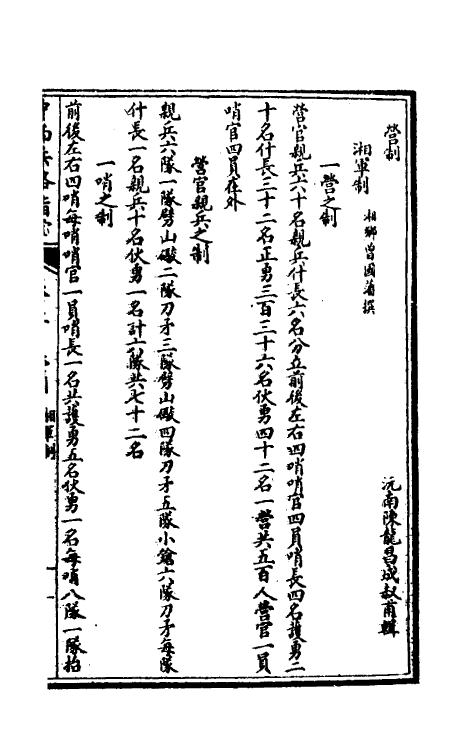 營制
沅南陳龍昌成叔甫輯
湘軍制　湘鄉曾國藩撰
一營之制
營官親兵六十名親兵什長六名分立前後左右四哨哨官四員哨長四名護勇二
十名什長三十二名正勇三百三十六名伙勇四十二名一營共五百人營官一員
哨官四員在外
營官親兵之制
親兵六隊一隊劈山礮二隊刀矛三隊劈山礮四隊刀矛五隊小鎗六隊刀矛每隊
什長一名親兵十名伙勇一名計六隊共七十二名
一哨之制
前後左右四哨每哨哨官一員哨長一名共護勇五名伙勇一名每哨八隊一隊抬
湘軍制